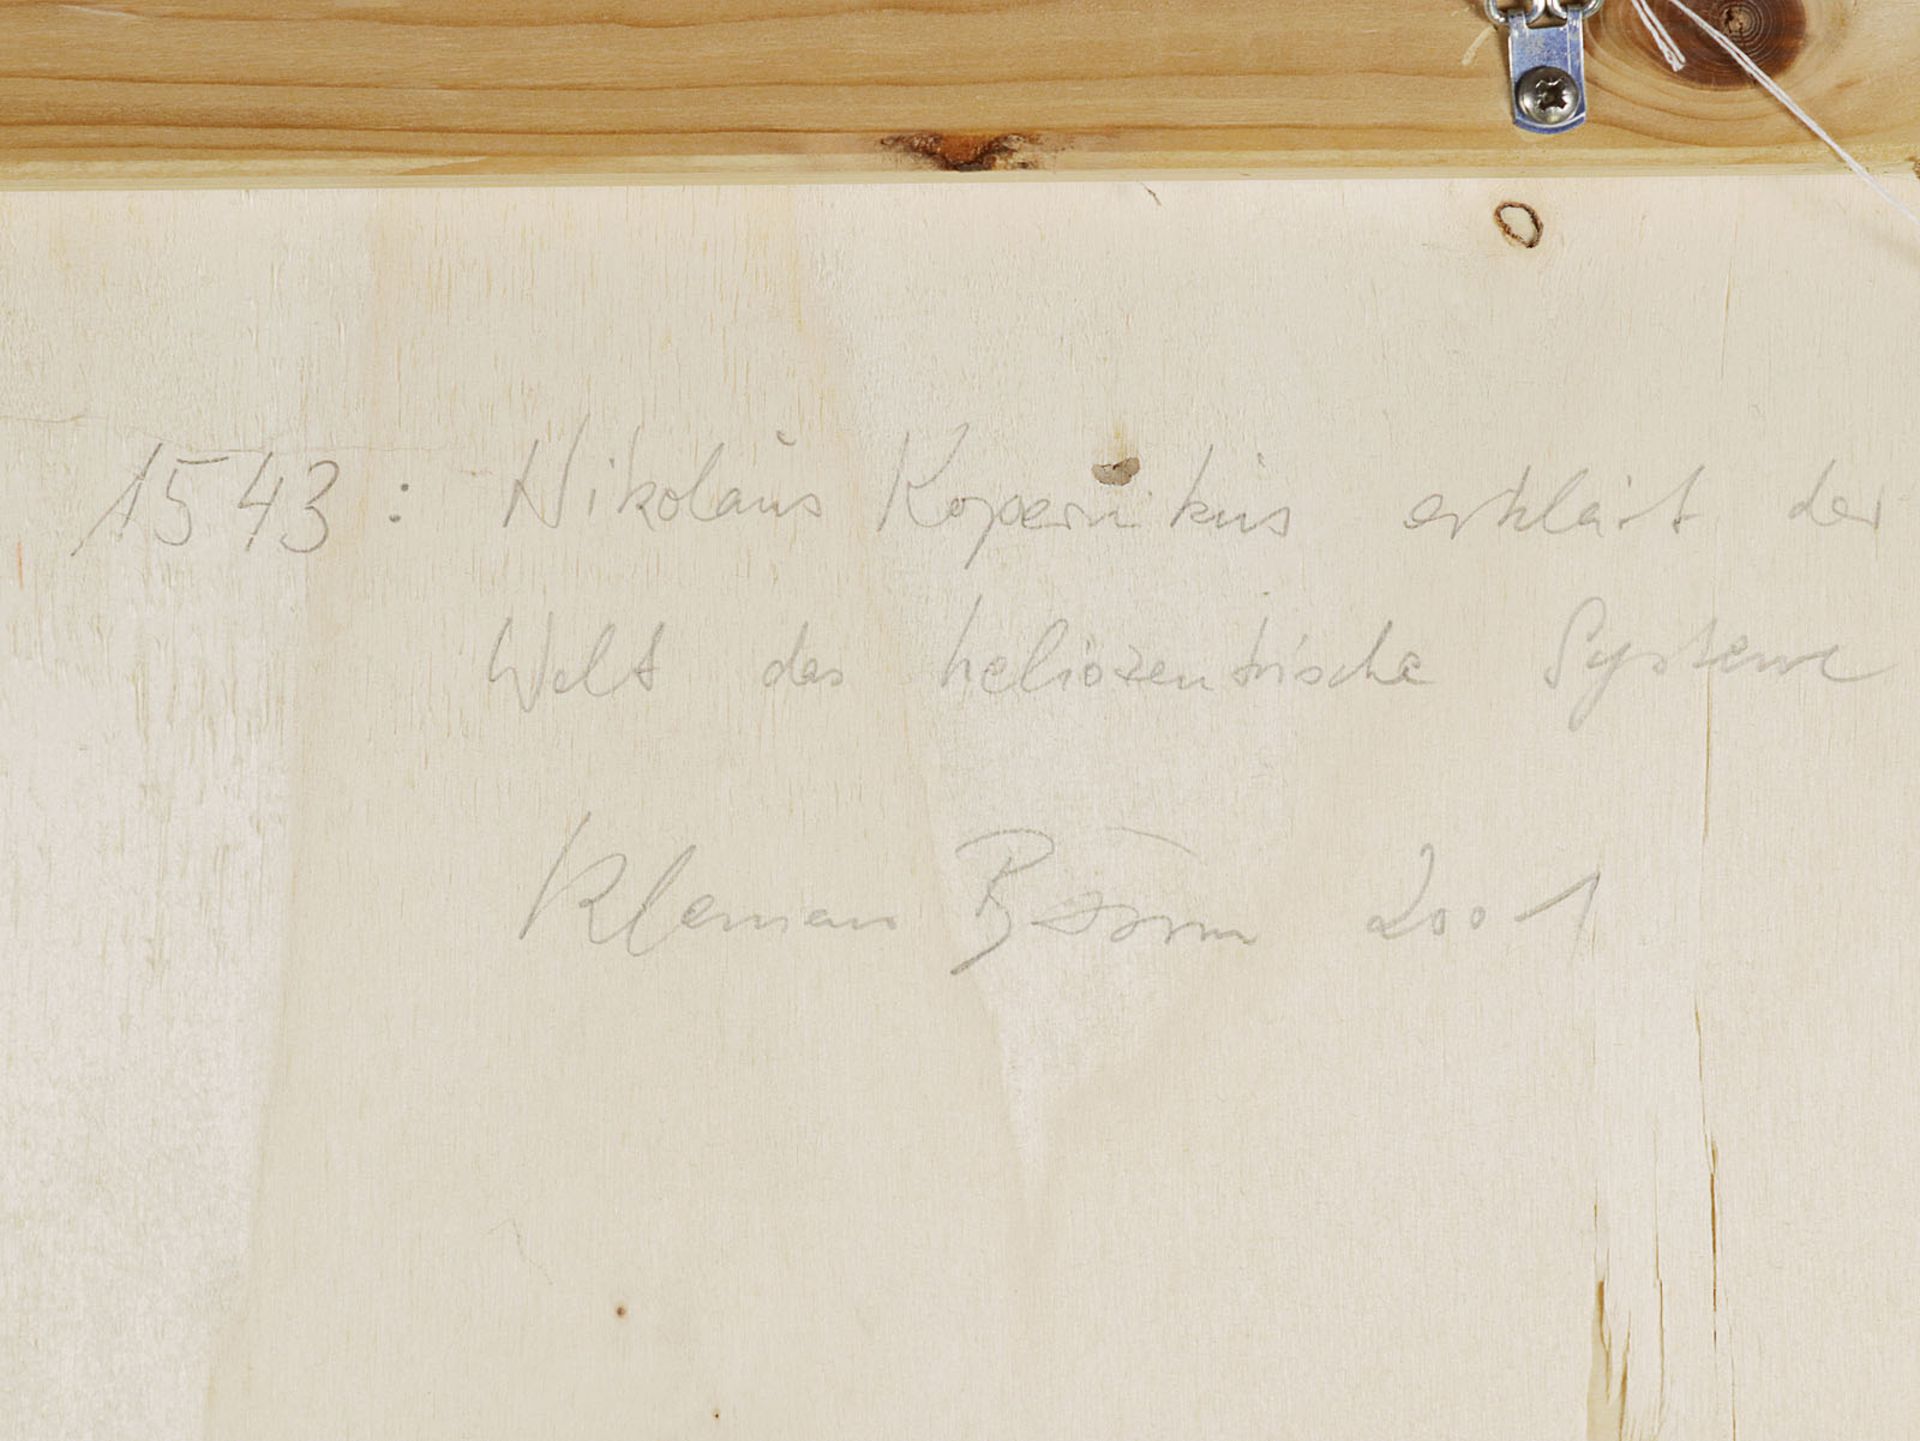 1543: Nikolaus Kopernikus erklärt der
Welt das heliozentrische Systeme
Klemens 2001